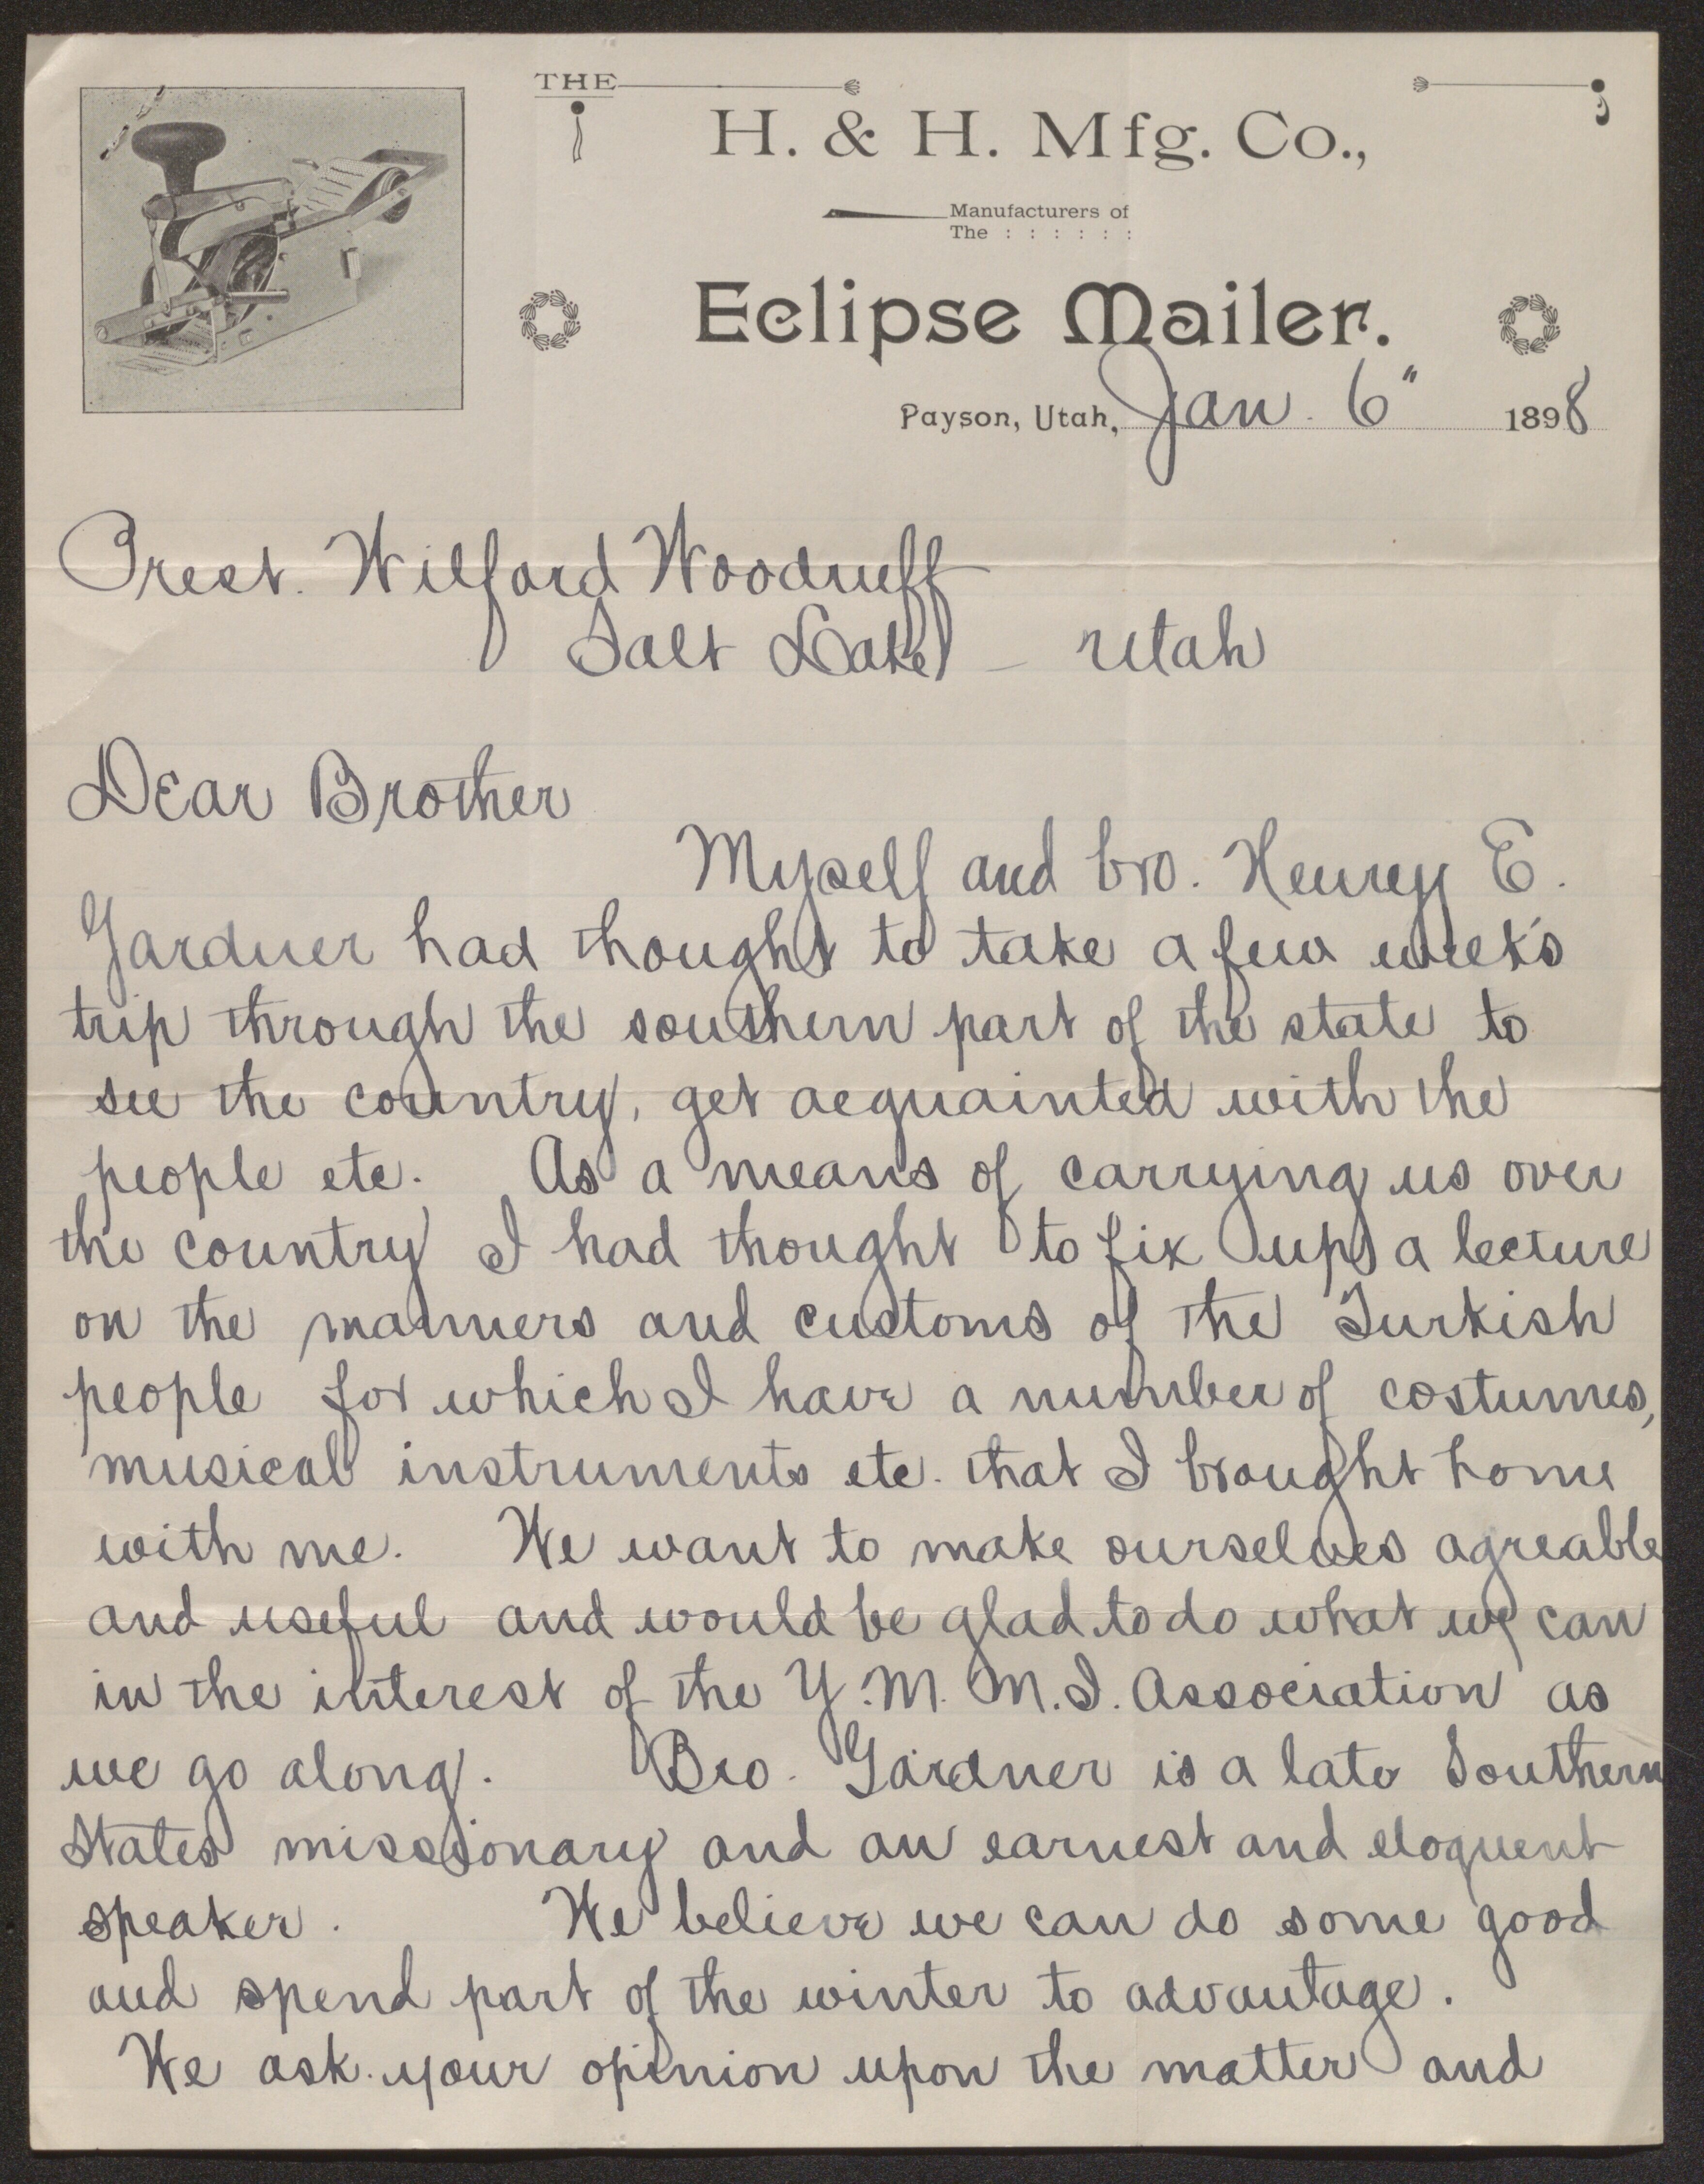 THE
H. & H. Mfg. Co.,
Manufacturers of
The : : : : : :
Eclipse Mailer.
Payson, Utah, Jan. 6" 1898
Prest. Wilford Woodruff
Salt Lake - Utah
Dear Brother
Myself and bro. Henry E.
Gardner had thought to take a few week's
trip through the southern part of the state to
see the country, get acquainted with the
people etc. As a means of carrying us over
the country I had thought to fix up a lecture
on the manners and customs of the Turkish
people for which I have a number of costumes,
musical instruments etc. that I brought home
with me. We want to make ourselves agreable
and useful and would be glad to do what we can
in the interest of the Y.M.M.I. Association as
we go along. Bro. Gardner is a late Southern
States missionary and an earnest and eloquent
speaker. We believe we can do some good
and spend part of the winter to advantage.
We ask your opinion upon the matter and